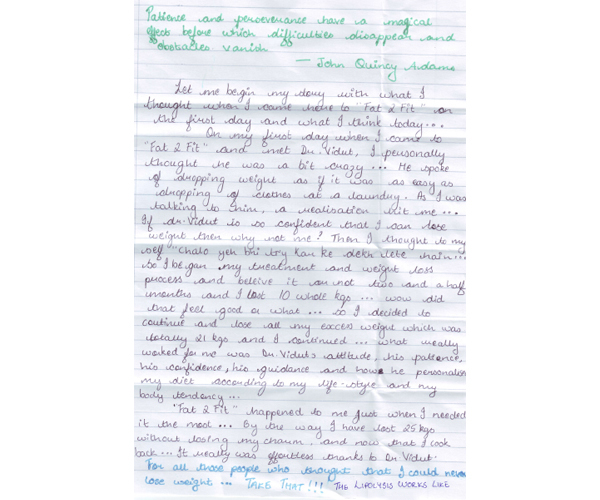 Patience and perseverance have a magical
effect before which difficulties disappear and
obstacles vanish
— John Quincy Adams
Let me begin my story with what I
thought when I came here to "Fat 2 Fit" on
the first day and what I think today...
On my first day when I came to
"Fat 2 Fit" and met Dr. Vidut, I personally
thought he was a bit crazy ... He spoke
of dropping weight as if it was as easy as
dropping of clothes at a laundry. As I was
talking to him, a realisation hit me ...
If dr. Vidut is so confident that I can lose
weight then why not me? Then I thought to my
self "chalo yeh bhi try kar ke dekh lete hain...
So I began my treatment and weight loss
process and beleive it or not two and a half
months and I lost 10 whole kgs ... wow did
that feel good or what ... so I decided to
continue and lose all my excess weight which was
totally 21 kgs and I continued ... what really
worked for me was Dr. Viduts attitude, his patience,
his confidence, his guidance and how he personalen
my diet according to my life-style and my
body tendency ...
"Fat 2 Fit" happened to me just when I needed
it the most ... By the way I have lost 25 kgs
without losing my charm. and now that I look
back ... It really was effortless thanks to Dr. Vidut.
For all those people who thought that I could never
lose weight ... TAKE THAT!!! THE LIPOLYSIS WORKS LIKE